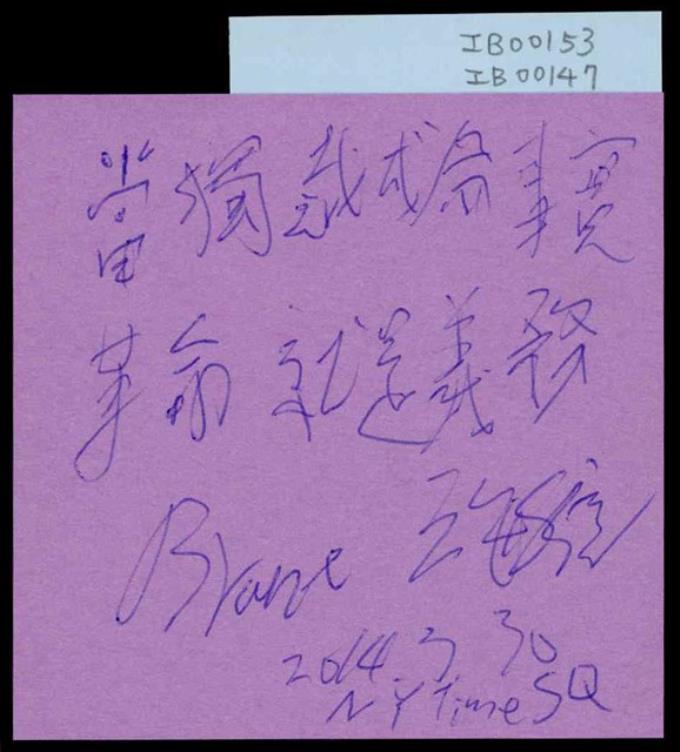 IB00153
IB00147
當獨裁成為事實
革命就是義務
2014.3.30
NY Time SQ